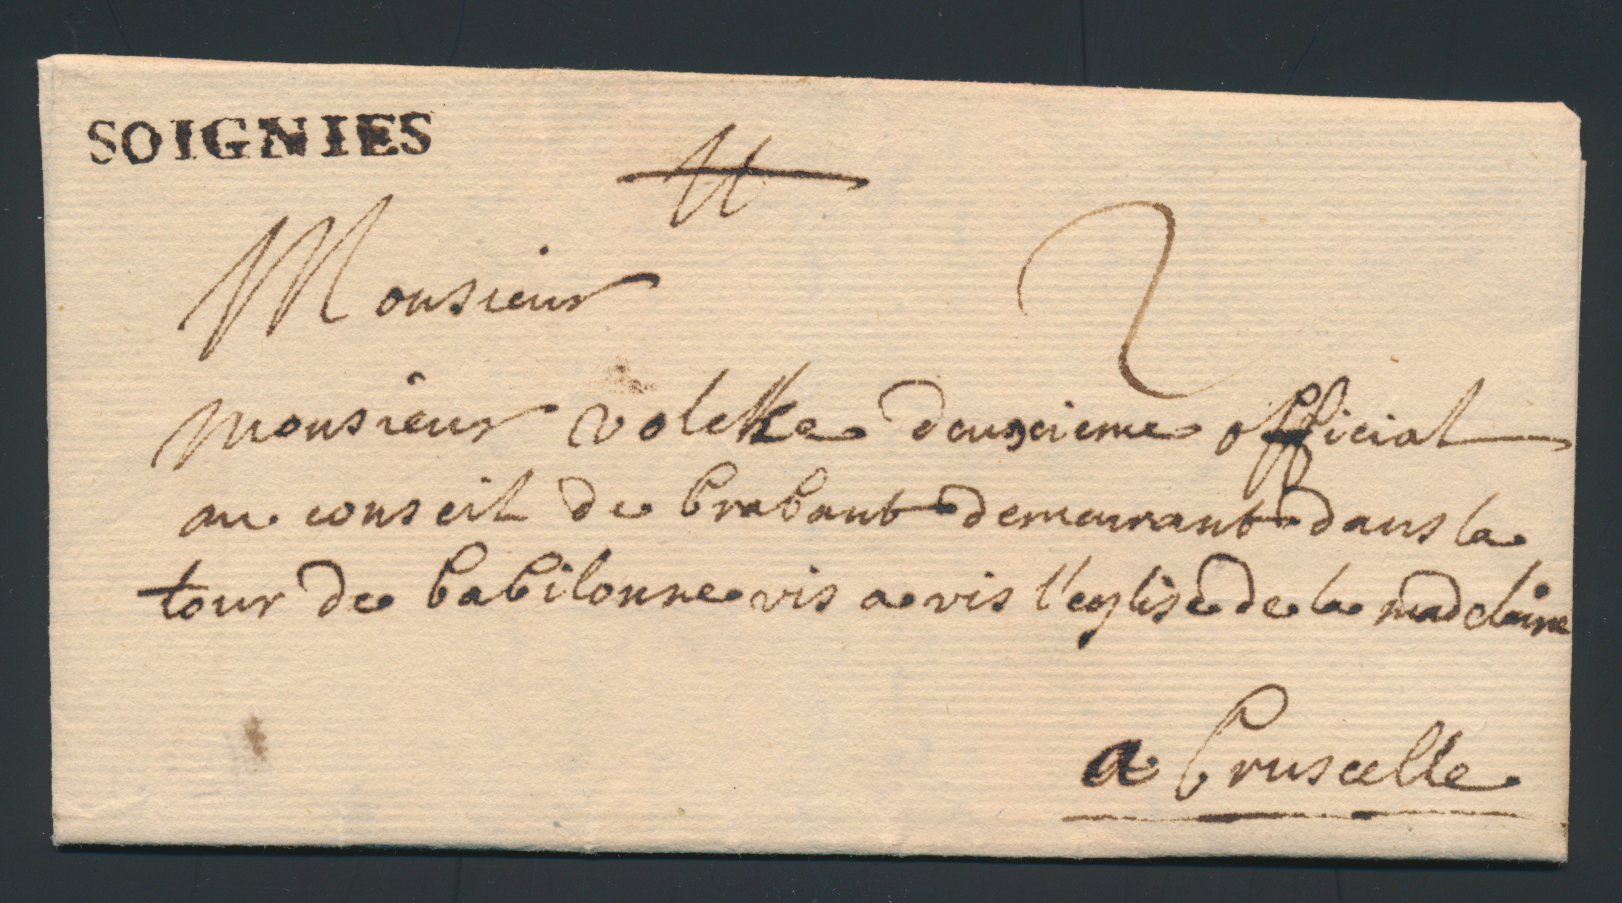 SOIGNIES
2
Monsieur
monsieur volcke deuxcieme official
au conseil de brabant demeurant dans la
tour de babilonne vis a vis l'eglise de la madelaine
a bruscelle